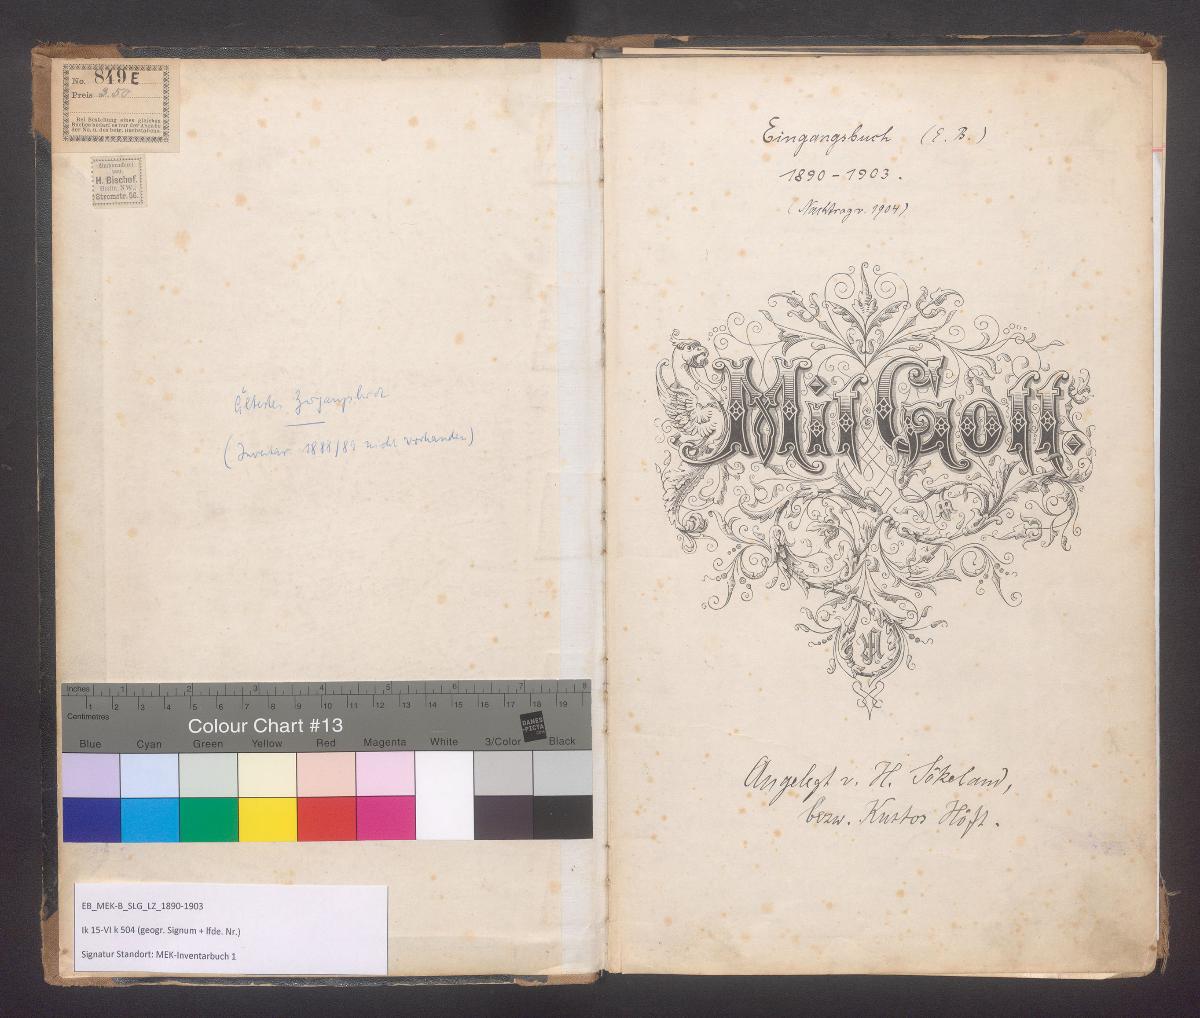 No. 849 E
Preis 3.50
Bei Bestellung eines gleichen
Buches bedarf es nur der Angabe
der No. u. des betr. Buchstabens.
Buchbinderei
von
H. Bischof.
Berlin, NW.,
Stromstr. 56.
Ältestes Zugangsbuch
(Inventar 1888/89 nicht vorhanden)
Inches 1 2 3 4 5 6 7 8
1 2 3 4 5 6 7 8 9 10 11 12 13 14 15 16 17 18 19
Centimetres
Colour Chart #13
DANES
-PICTA
Blue Cyan Green Yellow Red Magenta White 3/Color Black
EB_MEK-B_SLG_LZ_1890-1903
Ik 15-VI k 504 (geogr. Signum + lfde. Nr.)
Signatur Standort: MEK-Inventarbuch 1
Eingangsbuch (E. B.)
1890-1903.
(Nachtrag v. 1904)
Mit Gott.
Angelegt v. H. Sökeland,
bezw. Kustos Höft.